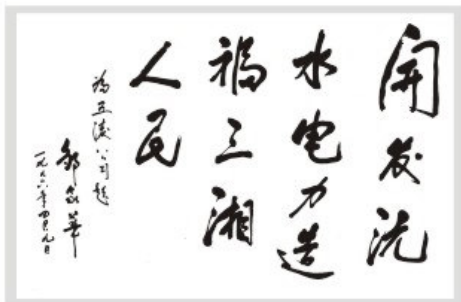 開发沅
水电力造
福三湘
人民
为五凌公司题
邹家华
一九九六年四月九日